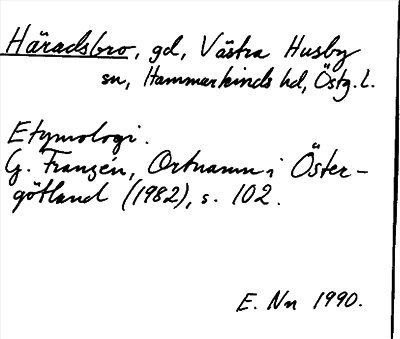 Häradsbro, gd, Västra Husby
sn, Hammarkinds hd, Östg. l.
Etymologi.
G. Franzén, Ortnamn i Öster-
götland (1982), s. 102.
E. Nn 1990.